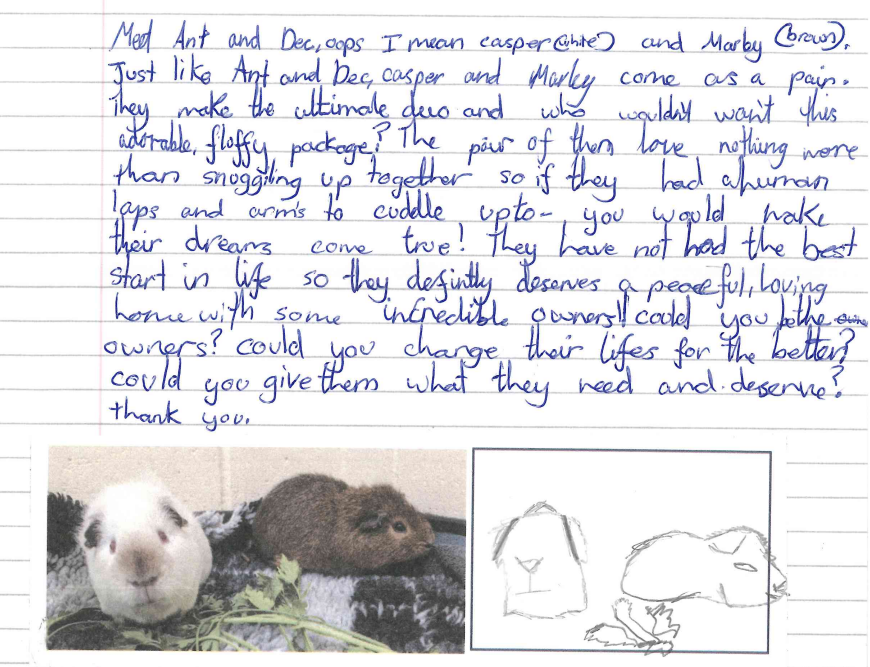 Meet Ant and Dec, oops I mean casper (white) and Marby (brown).
Just like Ant and Dec, casper and Marley come as a pair.
They make the ultimate duo and who wouldn't want this
adorable, floffy package? The pair of them love nothing more
than snuggiling up together so if they had a human
laps and arms to cuddle upto - you would make
their dreams come true! They have not had the best
start in life so they defintly deserves a peaceful, loving
home with some incredible owners!! could you be the
owners? could you change their lifes for the better?
could you give them what they need and deserve?
thank you.